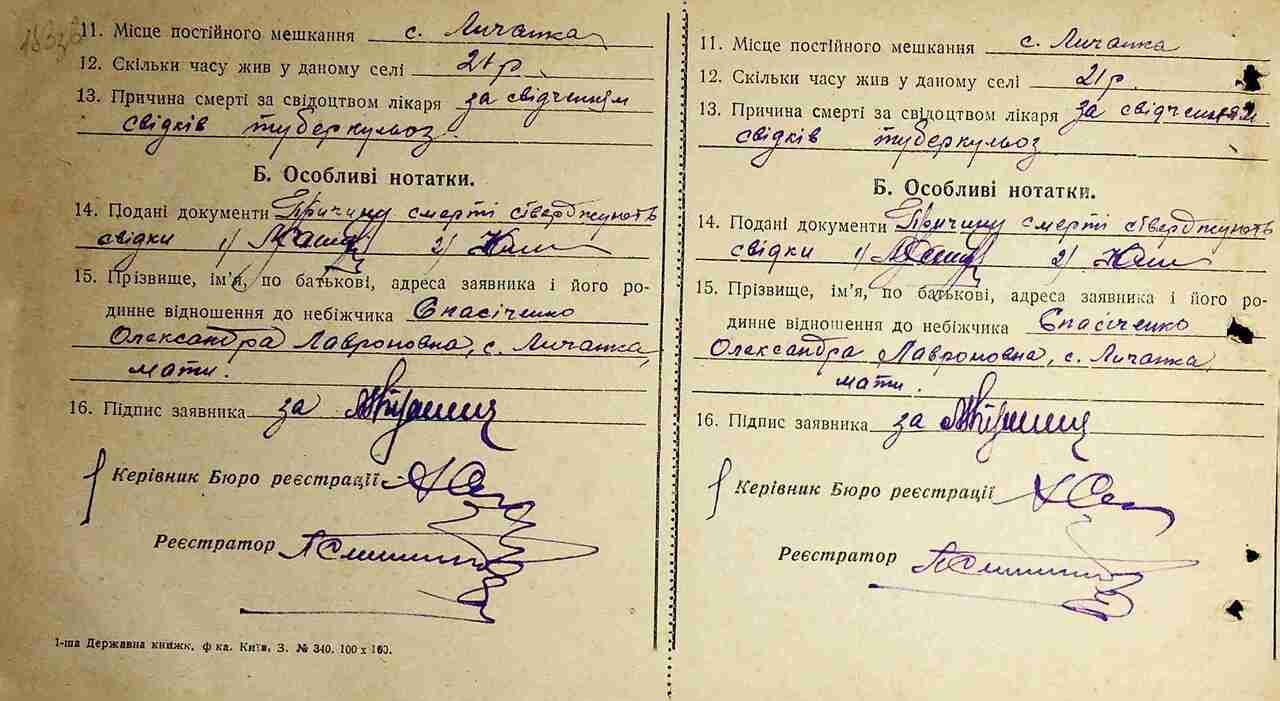 11. Місце постійного мешкання с. Личанка
12. Скільки часу жив у даному селі 21 р.
13. Причина смерті за свідоцтвом лікаря за свідченням
свідків туберкульоз.
Б. Особливі нотатки.
14. Подані документи Причину смерті стверджують
свідки 1) 2)
15. Прізвище, ім'я, по батькові, адреса заявника і його ро-
динне відношення до небіжчика Єпасіченко
Олександра Лавроновна, с. Личанка,
мати.
16. Підпис заявника за
Керівник Бюро реєстрації
Реєстратор
1-ша Державна книжк. ф ка. Київ, З. № 340. 100 х 160.
11. Місце постійного мешкання с. Личанка
12. Скільки часу жив у даному селі 21 р.
13. Причина смерті за свідоцтвом лікаря за свідчення
свідків туберкульоз
Б. Особливі нотатки.
14. Подані документи Причину смерті стверджують
свідки 1) 2)
15. Прізвище, ім'я, по батькові, адреса заявника і його ро-
динне відношення до небіжчика Єпасіченко
Олександра Лавроновна, с. Личанка,
мати.
16. Підпис заявника за
Керівник Бюро реєстрації
Реєстратор